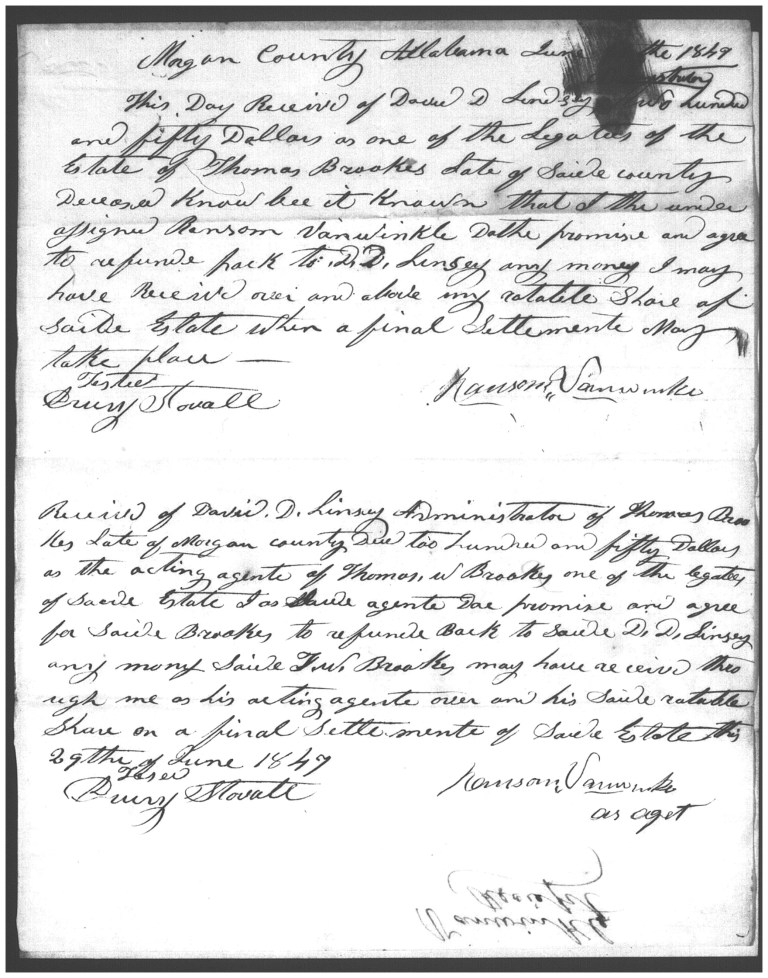 Morgan County Allabama June the 1849
Administrator
This Day Receivd of David D Lindsey two hundred
and fifty Dollars as one of the Legatees of the
Estate of Thomas Brookes Late of Saide county
Deceasd Know bee it Known that I the under
assigned Ransom Vanwinkle Dothe promise and agree
to refunde back to D. D. Linsey any money I may
have Receivd over and above my ratable Share of
Saide Estate when a final Settlemente May
take place —
Testee
Drury Stovall Ransom Vanwinkle
Receivd of David. D. Linsey Administrator of Thomas Broo
kes Late of Morgan county Died too hundred and fifty Dollars
as the acting agente of Thomas. W Brookes one of the legatees
of Saide Estate I as Saide agente Doe promise and agree
for Saide Brookes to refunde Back to Saide D. D. Linsey
any mony Saide T W Brookes may have receivd thro
ugh me as his acting agente over and his Saide ratable
Share on a final Settlemente of Saide Estate this
29the of June 1847
Testee
Drury Stovall Ransom Vanwinkle
as aget
Vanwinkle
Receipt